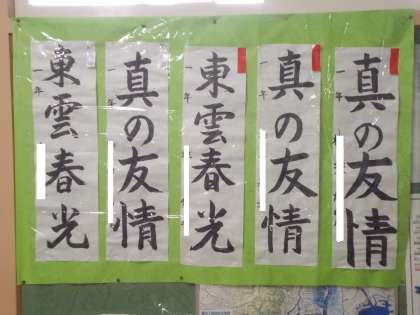 真の友情
一年
真の友情
一年
東雲春光
一年
真の友情
一年
東雲春光
一年